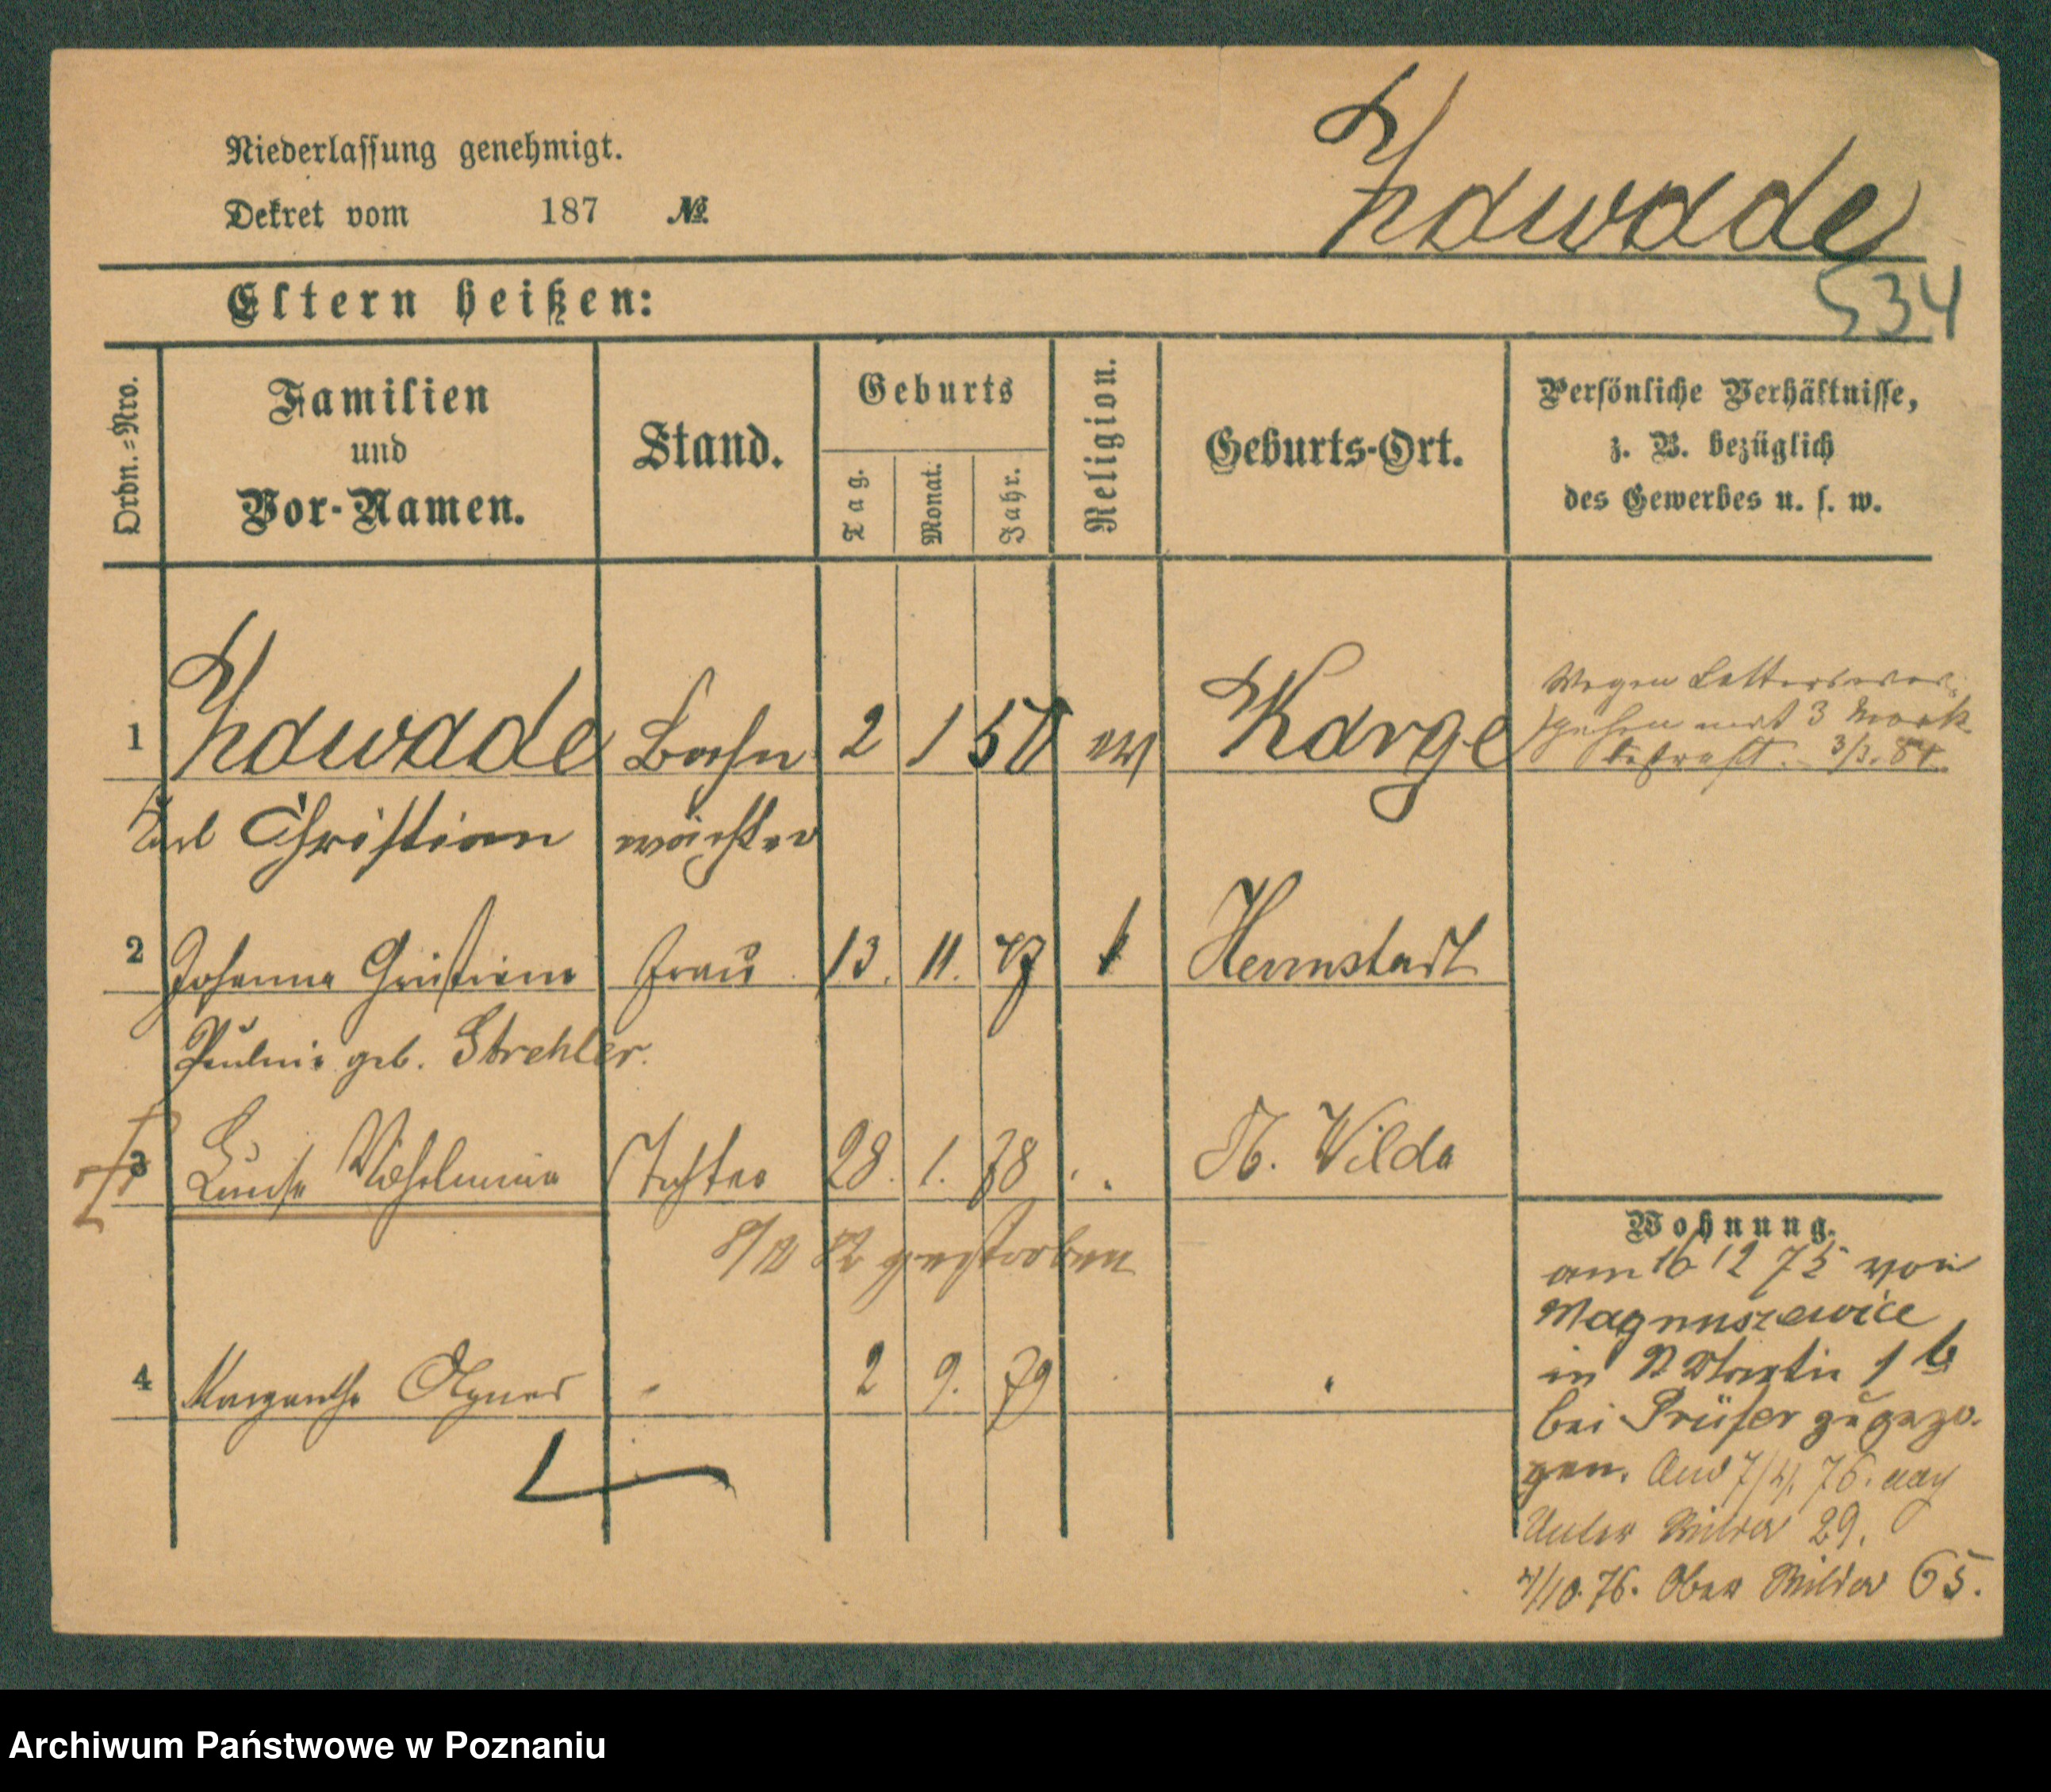 Niederlassung genehmigt.
Dekret vom 187 №
Zawade
534
Eltern heißen:
Ordn.=Nro.
Familien und Vor-Namen.
Stand.
Geburts
Tag.
Monat.
Jahr.
Religion.
Geburts-Ort.
Persönliche Verhältnisse,
z. B. bezüglich
des Gewerbes u. s. w.
1 Zawade Bahn 2 1 50 ev Karge
Wegen
mit 3 Mark
bestraft. 3/3. 81.
Karl Christian wächter
2 Johanna Christiane Frau 13. 11. Herrnstadt
Pauline geb. Strehler.
3 Louise Wilhelmine Tochter 28. 1. 78 St. Wilda
82 gestorben
4 Margarethe Agnes " 2 9. 79 "
Wohnung.
am 16 12 75 von
Magnuszewice
in St Martin 1 b
bei Prüfer zugezo-
gen. 7/4. 76. nach
Unter Wilda 29.
4/10. 76. Ober Wilda 65.
Archiwum Państwowe w Poznaniu